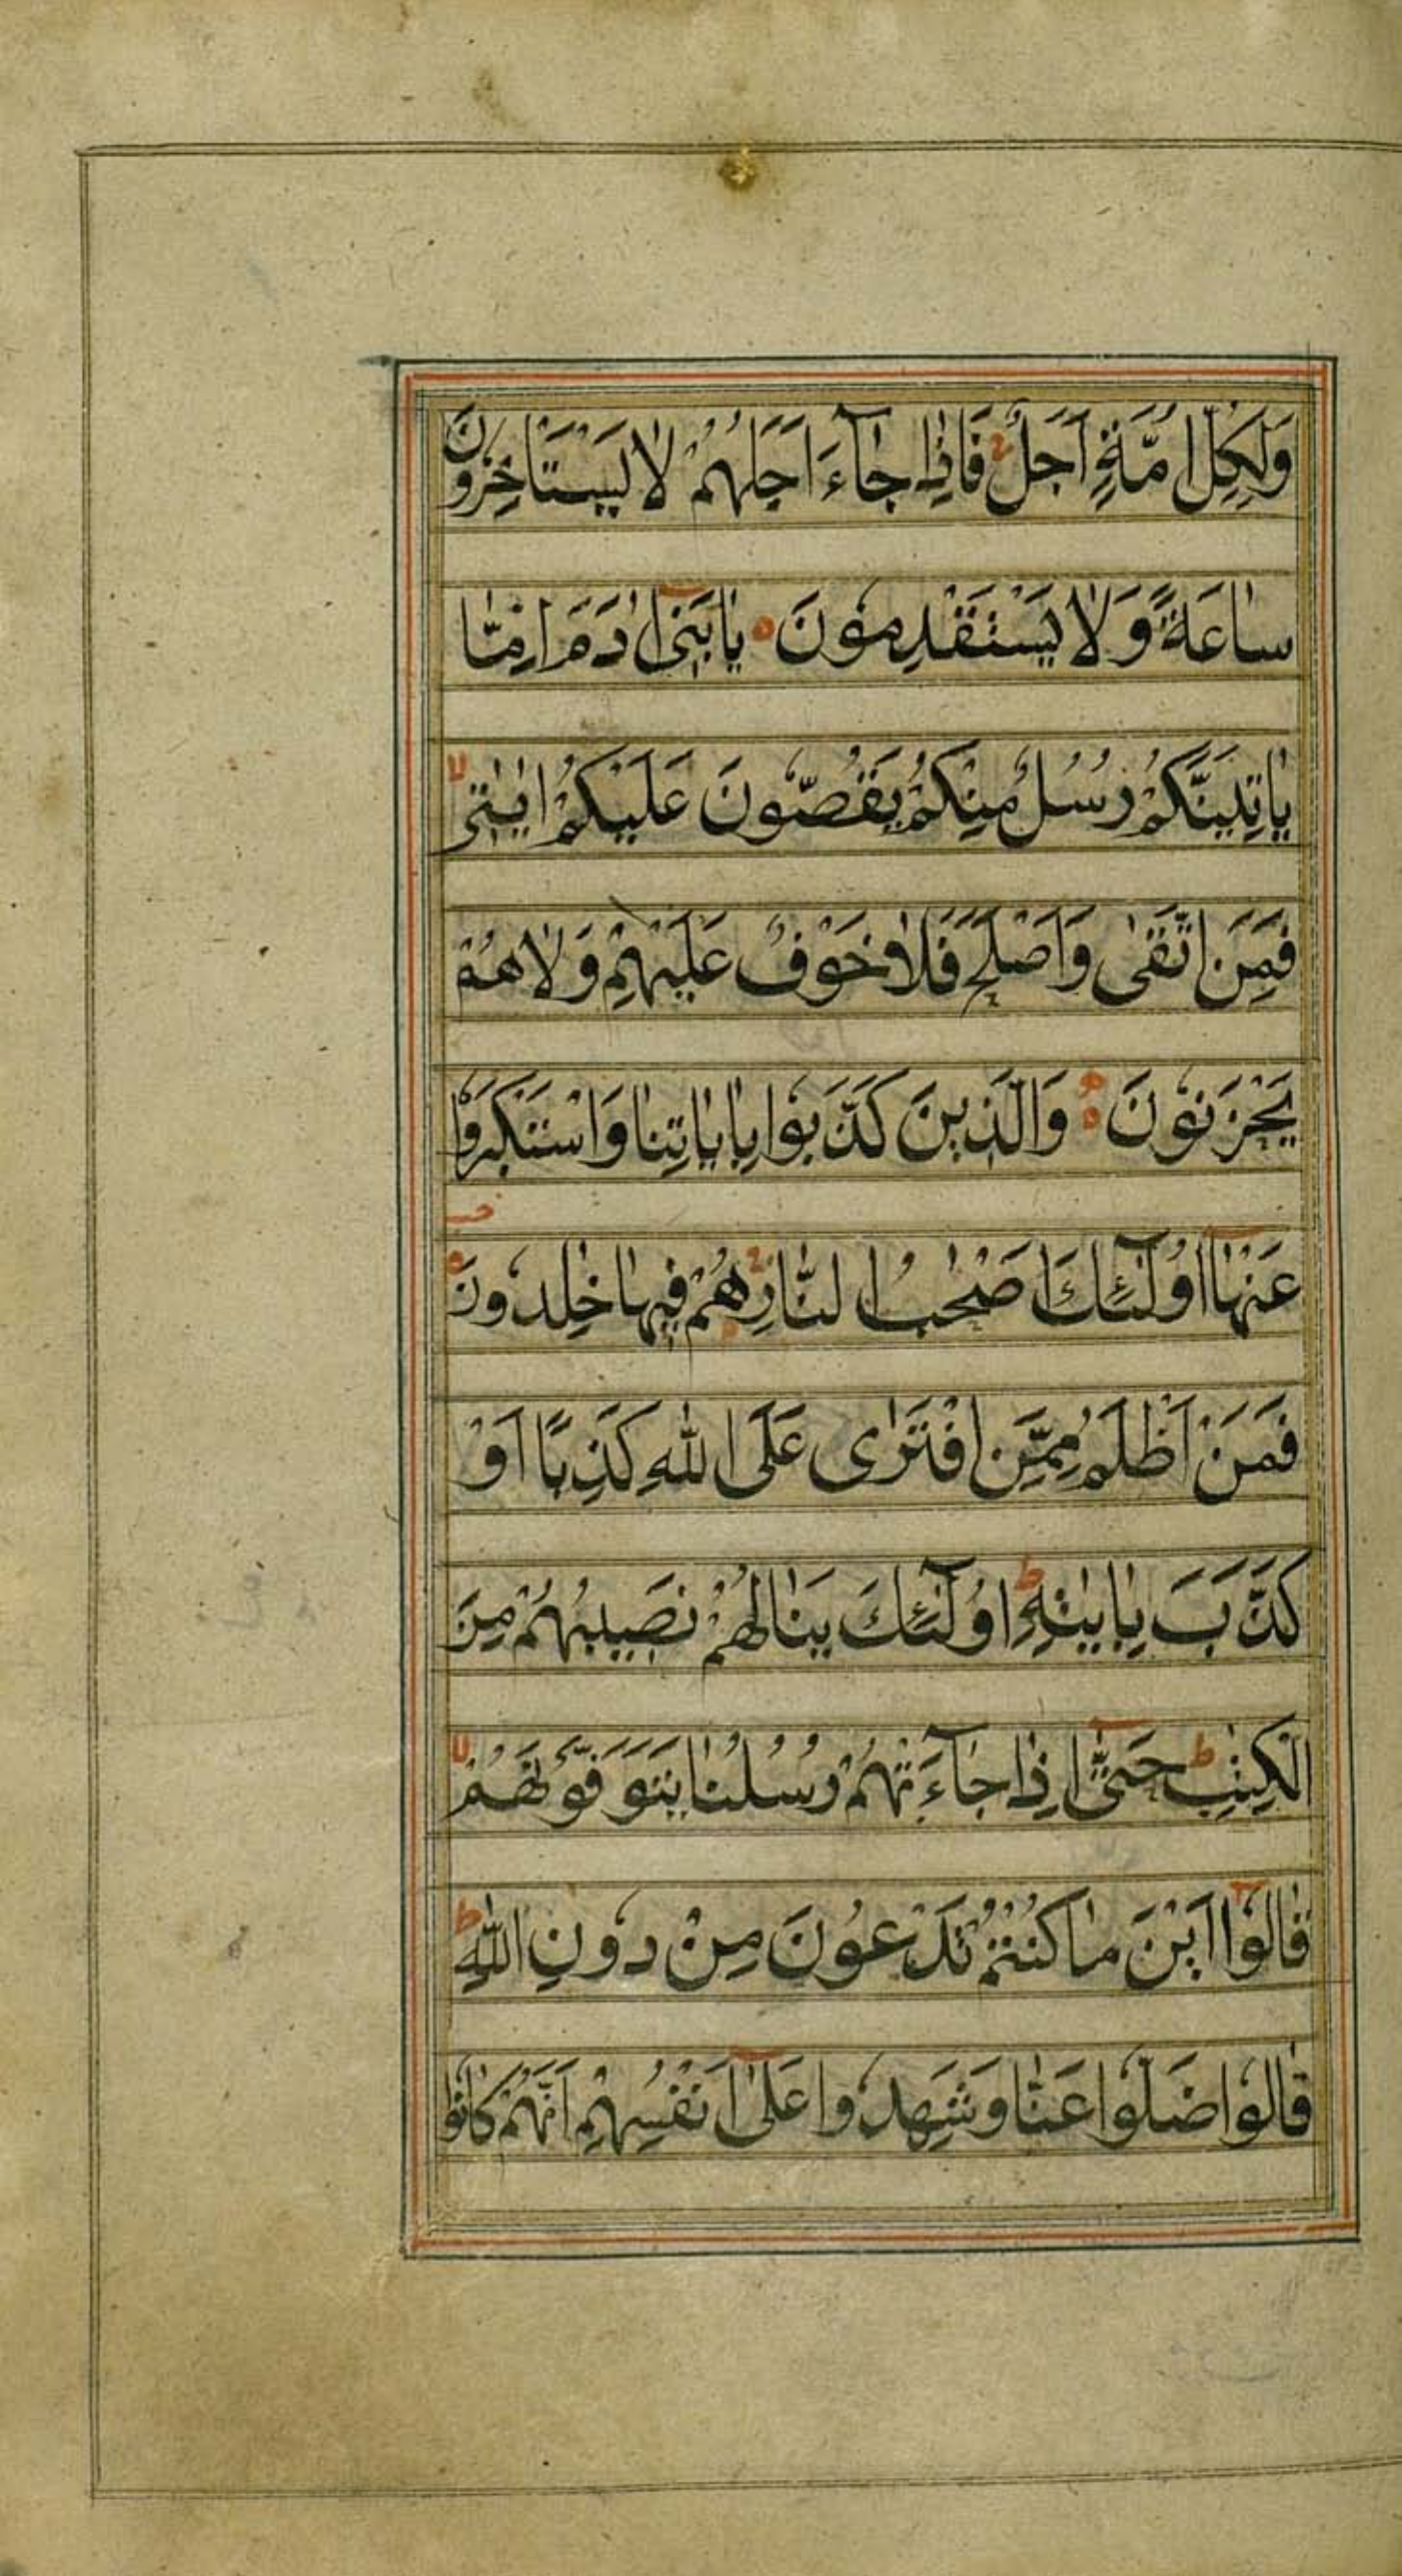 وَلِكُلِّ اُمَّةٍ اَجَلٌ فَاِذَا جَآءَ اَجَلُهُمْ لَا يَسْتَاْخِرُونَ
سَاعَةً وَلَا يَسْتَقْدِمُونَ يَابَنِىٓ اٰدَمَ اِمَّا
يَاْتِيَنَّكُمْ رُسُلٌ مِنْكُمْ يَقُصُّونَ عَلَيْكُمْ اٰيٰتِى
فَمَنِ اتَّقٰى وَاَصْلَحَ فَلَا خَوْفٌ عَلَيْهِمْ وَلَا هُمْ
يَحْزَنُونَ وَالَّذِينَ كَذَّبُوا بِاٰيَاتِنَا وَاسْتَكْبَرُوا
عَنْهَآ اُولٰٓئِكَ اَصْحٰبُ النَّارِ هُمْ فِيهَا خٰلِدُونَ
فَمَنْ اَظْلَمُ مِمَّنِ افْتَرٰى عَلَى اللّٰهِ كَذِبًا اَوْ
كَذَّبَ بِاٰيٰتِهٖ اُولٰٓئِكَ يَنَالُهُمْ نَصِيبُهُمْ مِنَ
الْكِتٰبِ حَتّٰىٓ اِذَا جَآءَتْهُمْ رُسُلُنَا يَتَوَفَّوْنَهُمْ
قَالُوٓا اَيْنَ مَا كُنْتُمْ تَدْعُونَ مِنْ دُونِ اللّٰهِ
قَالُوا ضَلُّوا عَنَّا وَشَهِدُوا عَلٰىٓ اَنْفُسِهِمْ اَنَّهُمْ كَانُوا